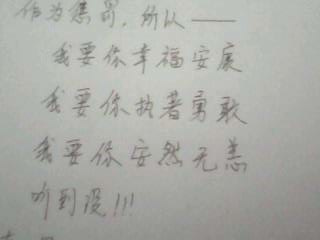 作为惩罚,所以——
我要你幸福安康
我要你执着勇敢
我要你安然无恙
听到没!!!